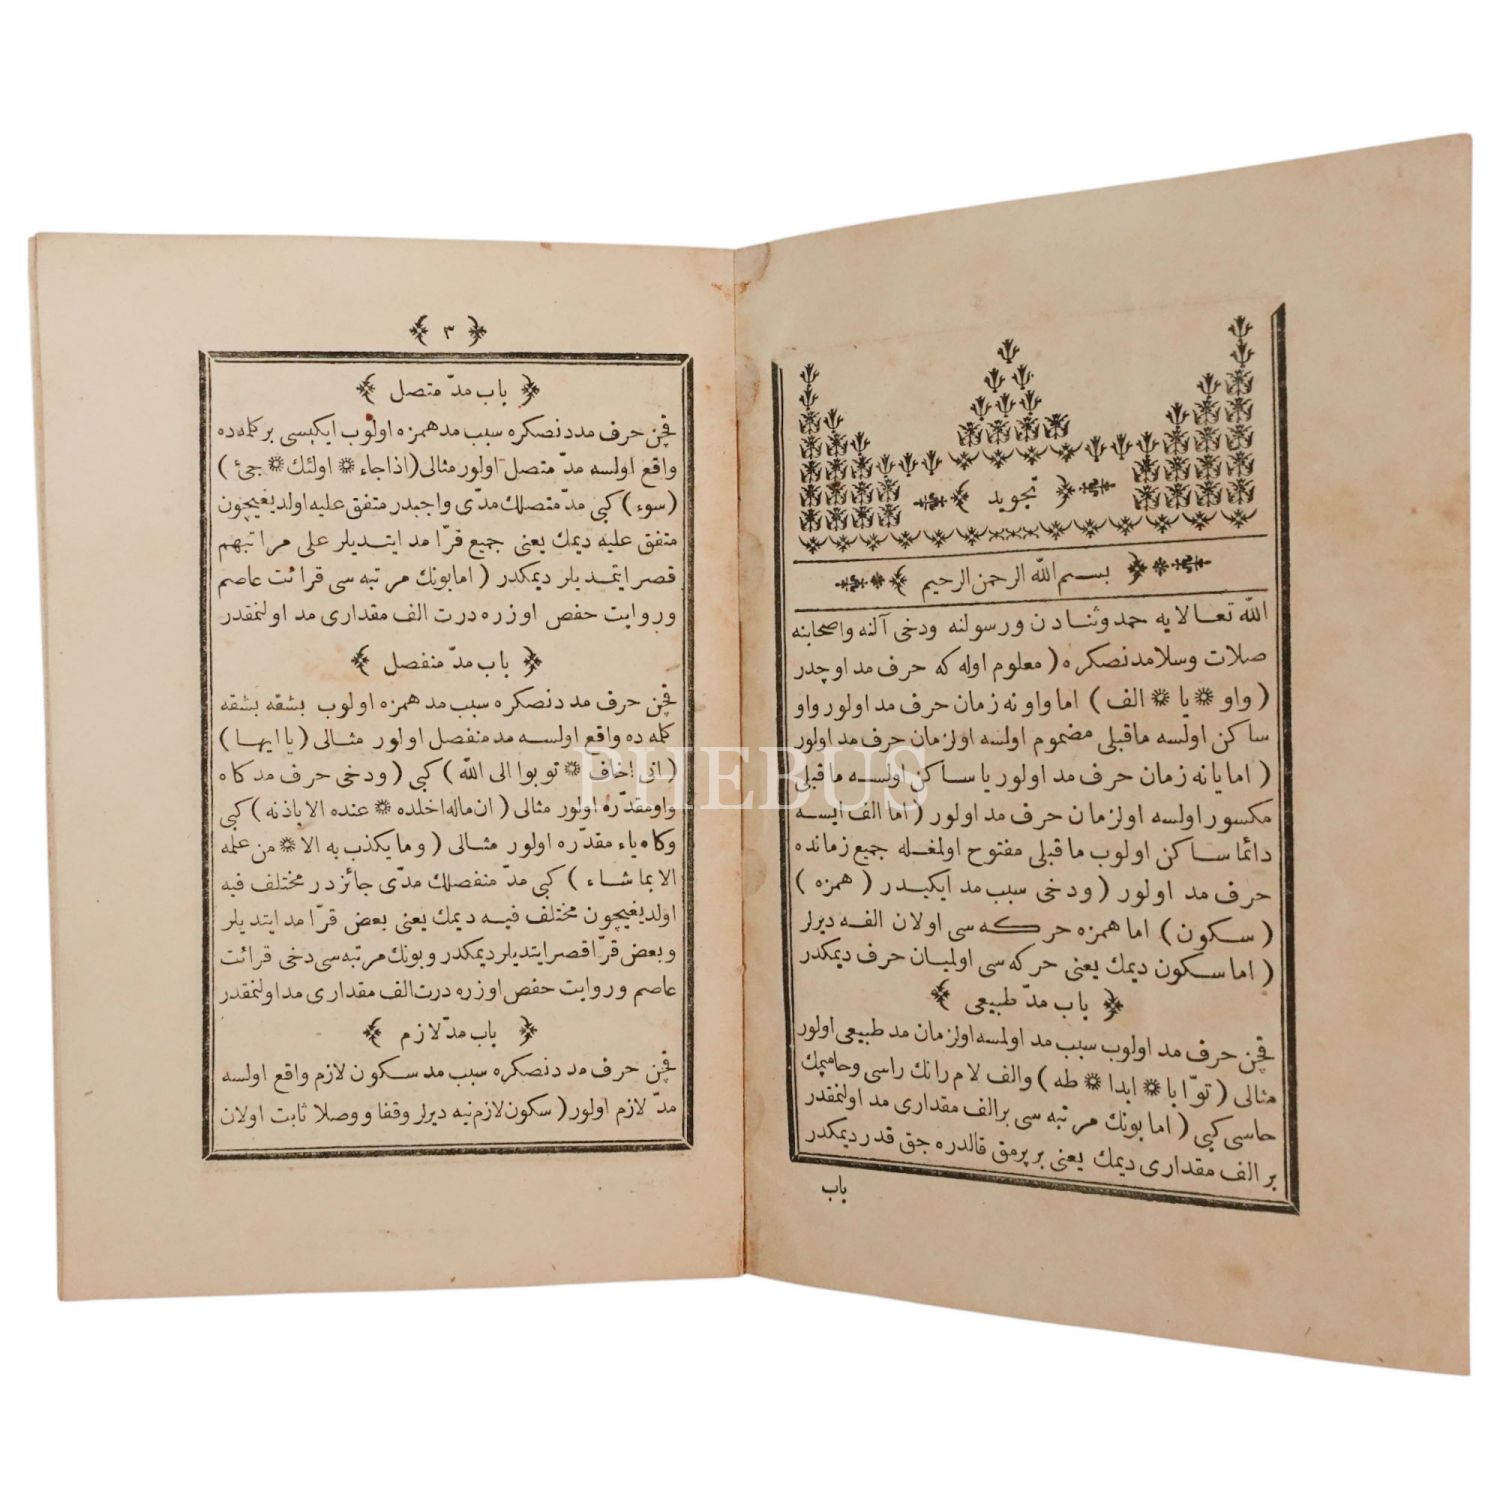 تجويد
بسم الله الرحمن الرحيم
الله تعالايه حمد وثنادن ورسولنه ودخى آلنه واصحابنه
صلات وسلامدنصكره (معلوم اوله كه حرف مد اوچدر
(واو * يا * الف) اما واو نه زمان حرف مد اولور واو
ساكن اولسه ماقبلى مضموم اولسه اولزمان حرف مد اولور
(اما يا نه زمان حرف مد اولور يا ساكن اولسه ماقبلى
مكسور اولسه اولزمان حرف مد اولور (اما الف ايسه
دائما ساكن اولوب ماقبلى مفتوح اولمغله جميع زمانده
حرف مد اولور (ودخى سبب مد ايكيدر (همزه)
(سكون) اما همزه حركه سى اولان الفه ديرلر
(اما سكون ديمك يعنى حركه سى اولميان حرف ديمكدر
باب مدّ طبيعى
قچن حرف مد اولوب سبب مد اولمسه اولزمان مد طبيعى اولور
مثالى (توّابا * ابدا * طه) والف لام رانك راسى وحاميمك
حاسى كبى (اما بونك مرتبه سى برالف مقدارى مد اولنمقدر
بر الف مقدارى ديمك يعنى بر پرمق قالدره جق قدر ديمكدر
باب
٣
باب مدّ متصل
قچن حرف مددنصكره سبب مد همزه اولوب ايكيسى بر كلمه ده
واقع اولسه مدّ متصل اولور مثالى (اذا جاء * اولئك * جىء)
(سوء) كبى مدّ متصلك مدّى واجبدر متفق عليه اولديغيچون
متفق عليه ديمك يعنى جميع قرّا مد ايتديلر على مراتبهم
قصر ايتمديلر ديمكدر (اما بونك مرتبه سى قرائت عاصم
وروايت حفص اوزره درت الف مقدارى مد اولنمقدر
باب مدّ منفصل
قچن حرف مددنصكره سبب مد همزه اولوب بشقه بشقه
كلمه ده واقع اولسه مد منفصل اولور مثالى (يا ايها)
(انى اخاف * توبوا الى الله) كبى (ودخى حرف مد كاه
واو مقدّره اولور مثالى (ان ماله اخلده * عنده الا باذنه) كبى
وكاه ياء مقدّره اولور مثالى (وما يكذب به الا * من علمه
الا بما شاء) كبى مدّ منفصلك مدّى جائزدر مختلف فيه
اولديغيچون مختلف فيه ديمك يعنى بعض قرّا مد ايتديلر
وبعض قرّا قصر ايتديلر ديمكدر وبونك مرتبه سى دخى قرائت
عاصم وروايت حفص اوزره درت الف مقدارى مد اولنمقدر
باب مدّ لازم
قچن حرف مددنصكره سبب مد سكون لازم واقع اولسه
مدّ لازم اولور (سكون لازم نيه ديرلر وقفا ووصلا ثابت اولان
PHEBUS